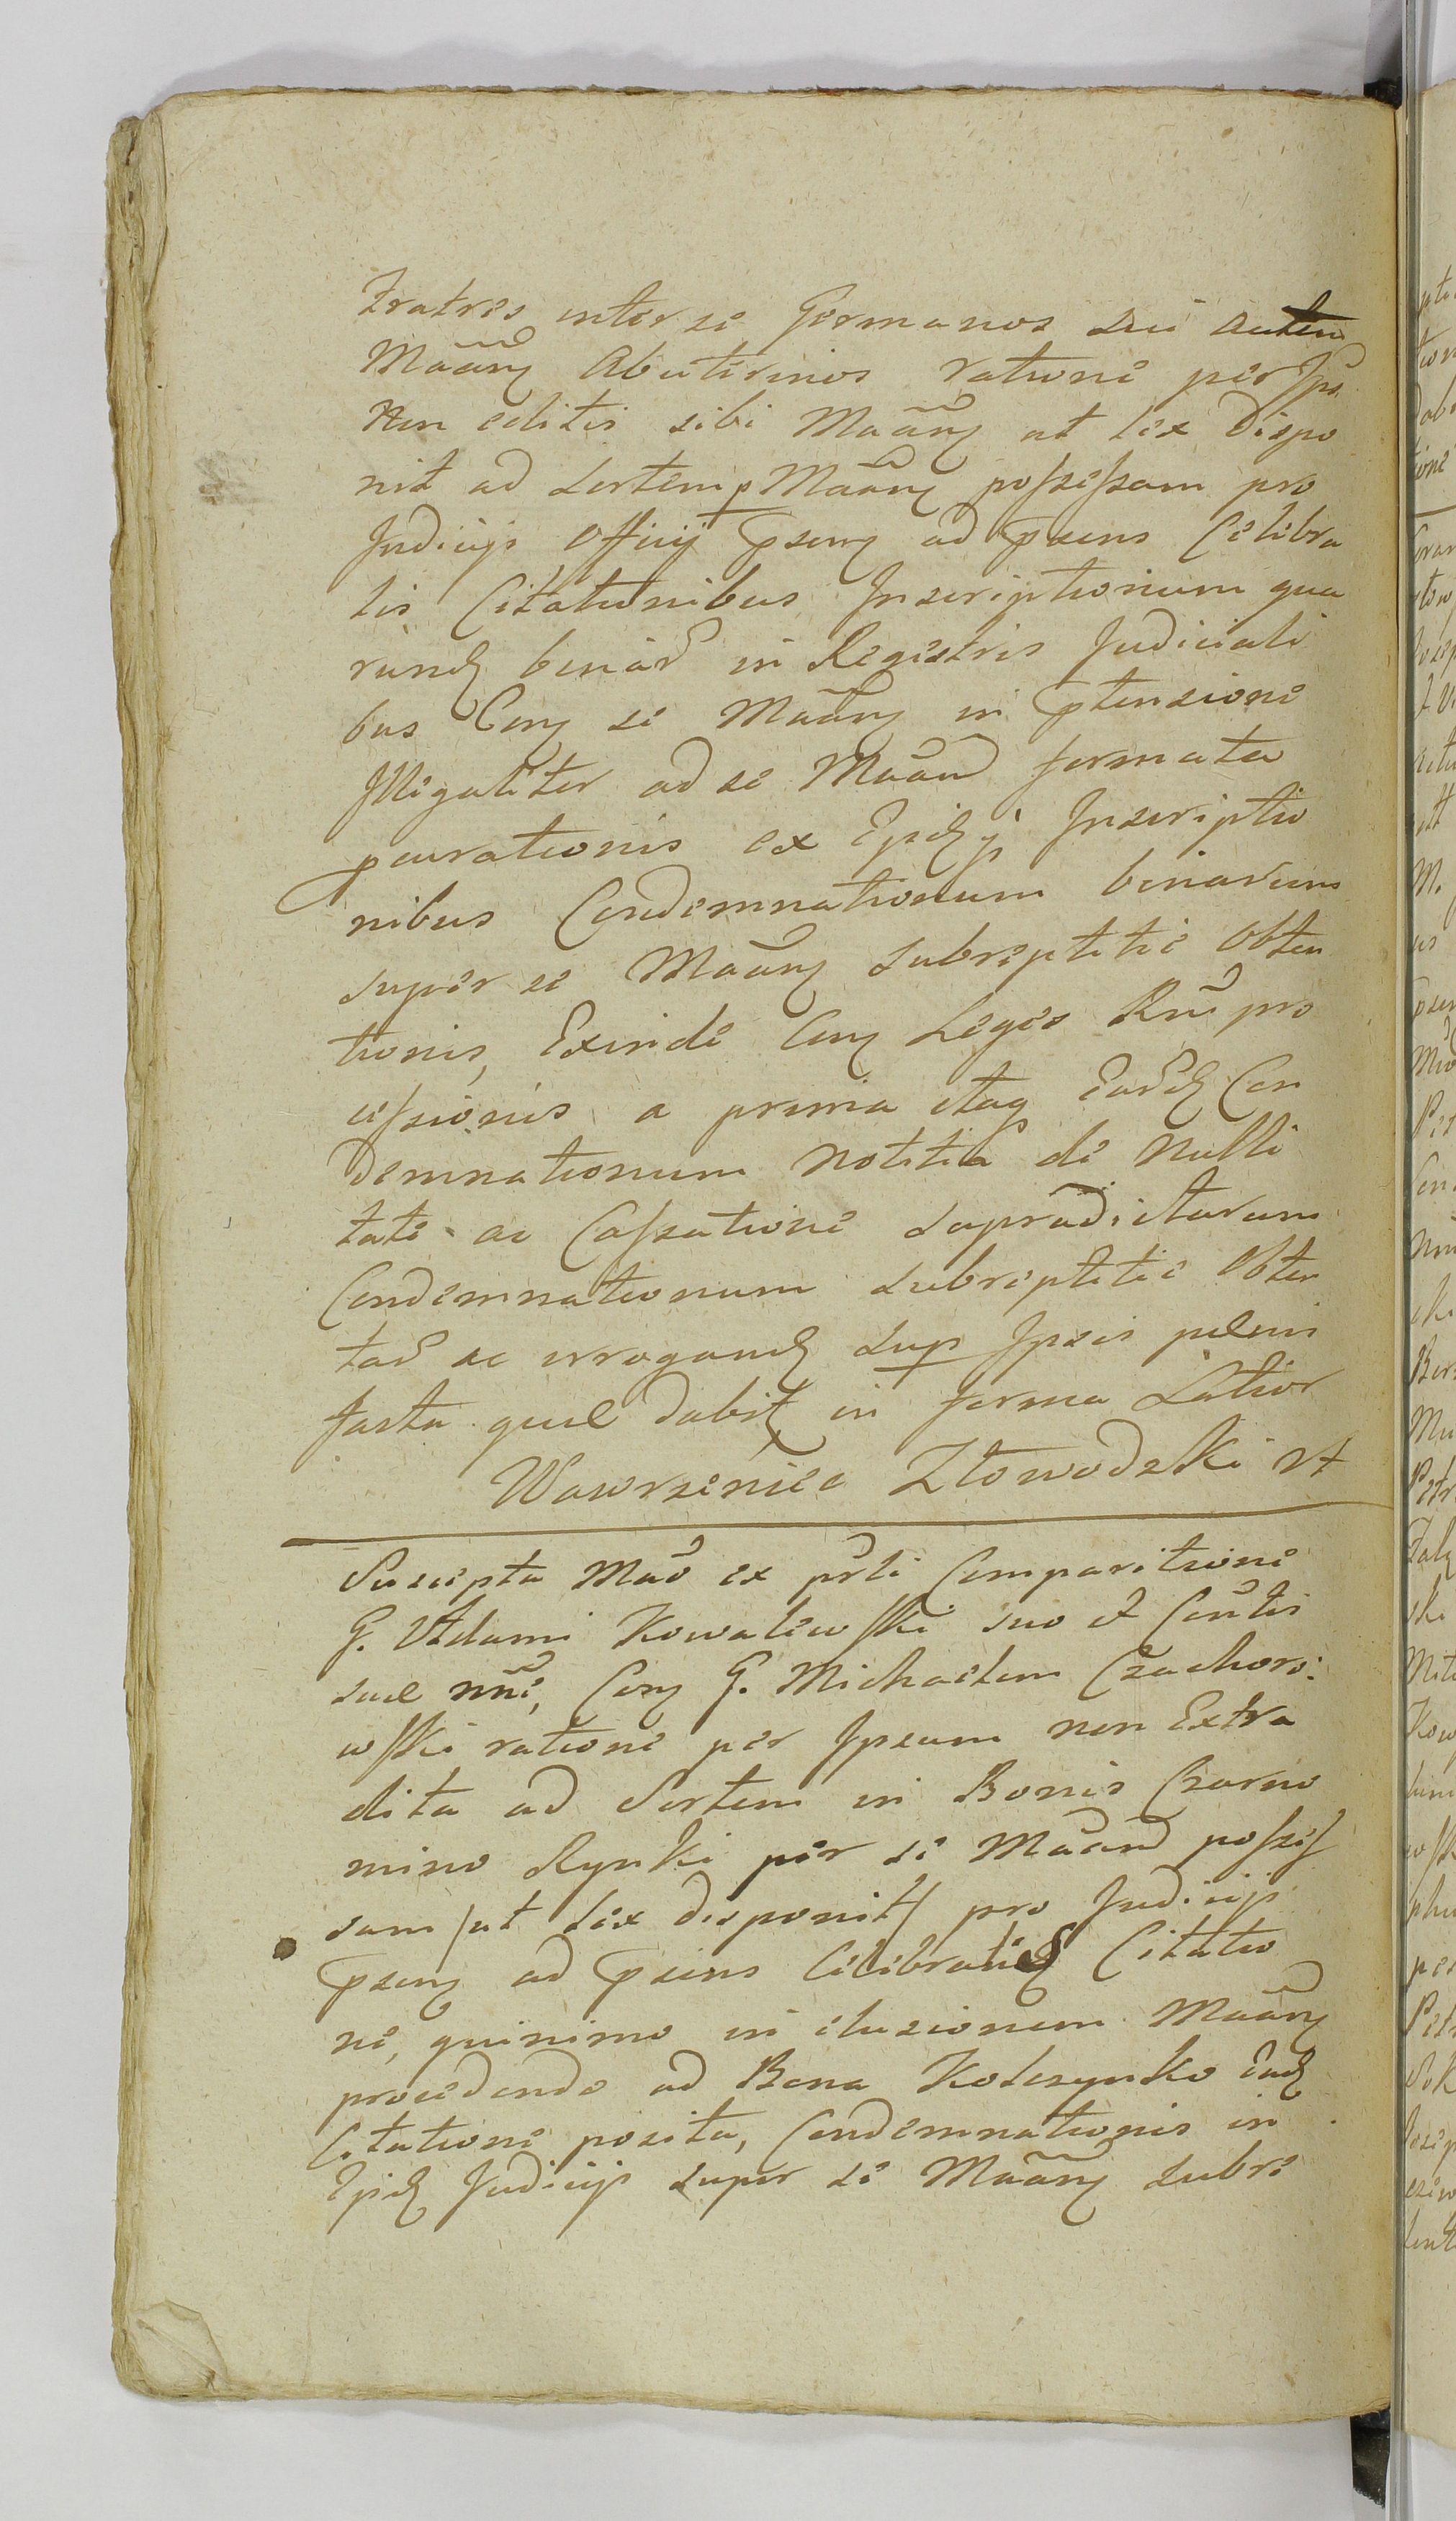 Fratres inter se Germanos Sui autem
Mããnᶎ Abutirinos ratione per Ipõ
Non editis sibi Mããnᶎ ut lex Dispo
nit ad Sortem p Mããnᶎ possessam pro
Judicijs Officij pseny ad psens Celebra
tis Citationibus Inscriptionum qua
rundᶎ binar̃ in Regestris Judiciali
bus Cony se Mããnᶎ in ptensione
Illegaliter ad se Mãam̃ formata
pcurationis ex Epidᶎ Inscriptio
nibus Condemnationum binarum
super se Mããnᶎ Subreptitie Obten
tionis, Exinde Cony Leges Rñi pro
cessionis a prima itaq Earᶎ Con
demnationum notitia de Nulli
tate ac Cassatione Supradictarum
Condemnationum Subreptitie Obten
tar̃ ac irrogandᶎ Sup Ipsis pœnis
Iuxta quæ dabitᶎ in forma Latior
Wawrzeniec Złowodzki A

Suscepta Mãõ ex pr̃li Comparitione
G. Adami Kowalewski suo et Con̄tis
suæ nñe, Cony G. Michaelem Czachoro:
wski ratione per Ipsum non Extra
dita ad Sortem in Bonis Czarno
mino Rynki per se Mãam̃ posses
sam /ut Lex disponit/ pro Judicijs
pseny ad psens Celebratis Citatio
ne, quinimo in elusionem Mããnᶎ
procedendo ad Bona Kolczynko Eadᶎ
Citatione posita, Condemnationis in
Epidᶎ Judicijs super se Mããnᶎ Subre